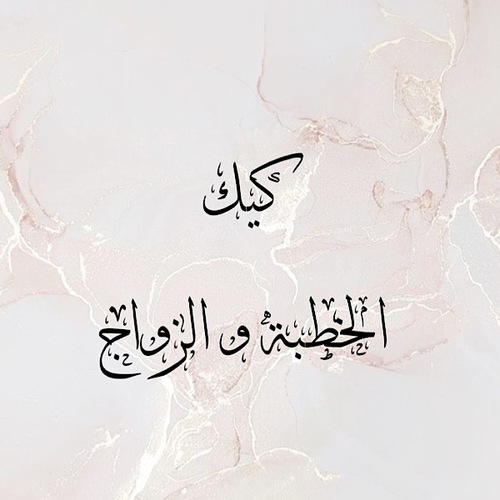 كيك
الخطبة و الزواج